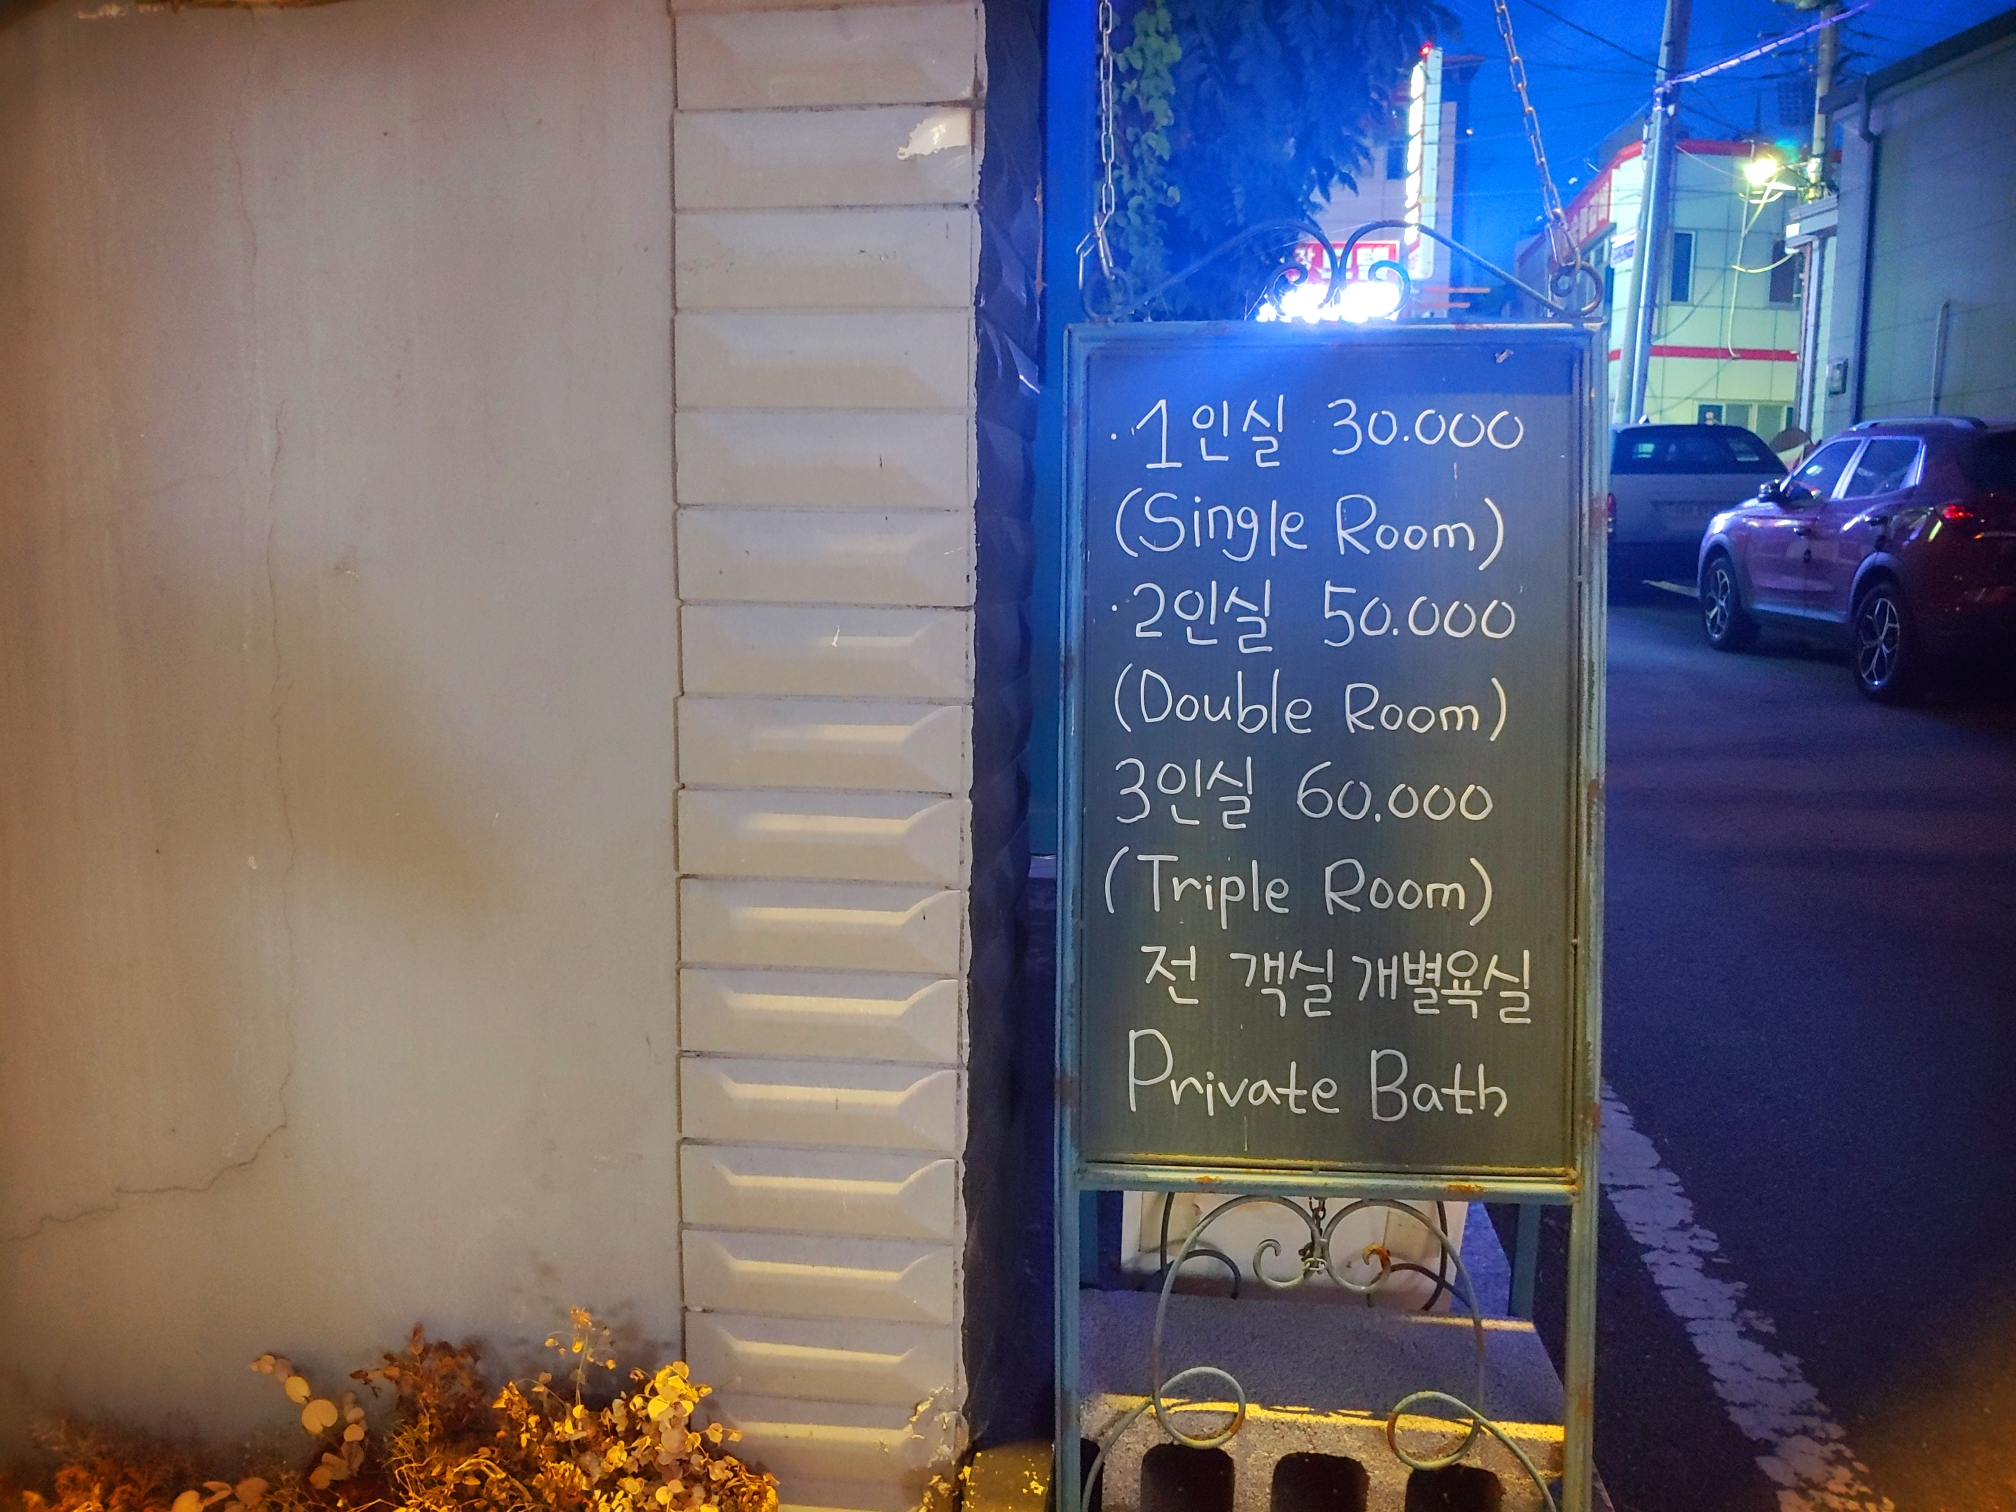 ·1인실 30.000
(Single Room)
·2인실 50.000
(Double Room)
3인실 60.000
(Triple Room)
전 객실 개별욕실
Private Bath